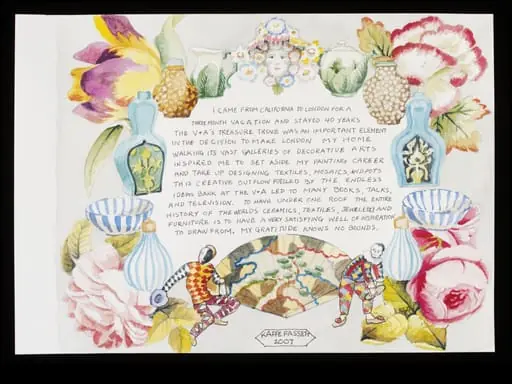 I CAME FROM CALIFORNIA TO LONDON FOR A
THREE MONTH VACATION AND STAYED 40 YEARS
THE V+A'S TREASURE TROVE WAS AN IMPORTANT ELEMENT
IN THE DECISION TO MAKE LONDON MY HOME.
WALKING ITS VAST GALLERIES OF DECORATIVE ARTS
INSPIRED ME TO SET ASIDE MY PAINTING CAREER
AND TAKE UP DESIGNING TEXTILES, MOSAICS, AND POTS
THIS CREATIVE OUTFLOW FUELLED BY THE ENDLESS
IDEAS BANK AT THE V+A LED TO MANY BOOKS, TALKS,
AND TELEVISION. TO HAVE UNDER ONE ROOF THE ENTIRE
HISTORY OF THE WORLDS CERAMICS, TEXTILES, JEWELLERY AND
FURNITURE IS TO HAVE A VERY SATISFYING WELL OF INSPIRATION
TO DRAW FROM. MY GRATITUDE KNOWS NO BOUNDS.
KAFFE FASSETT
2007